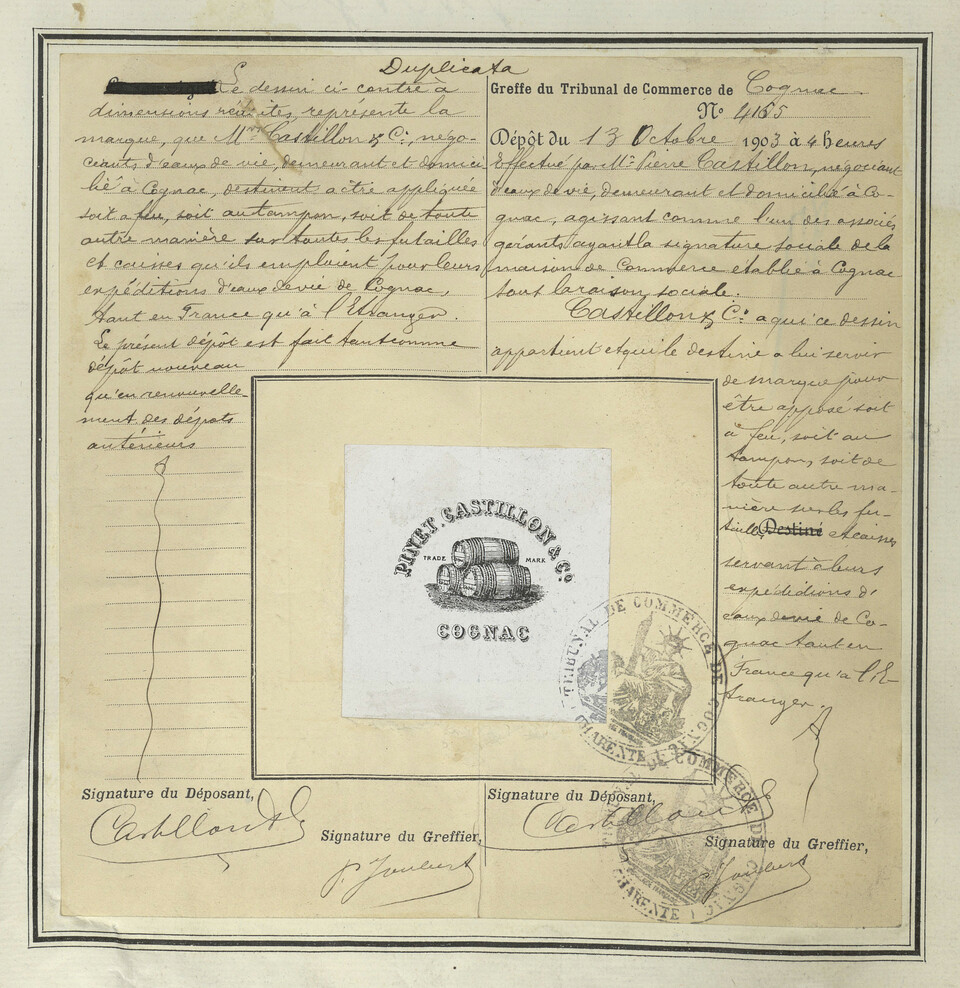 Duplicata
Le dessin ci-contre à
dimensions réduites, représente la
marque, que Mrs Castillon & Cie, négo-
ciants d'eaux de vie, demeurant et domici-
lié à Cognac, destinent a être appliquée
soit à feu, soit au tampon, soit de toute
autre manière sur toutes les futailles
et caisses qu'ils emploient pour leurs
expéditions d'eaux de vie de Cognac,
tant en France qu'à l'Etranger.
Le présent dépôt est fait tant comme
dépôt nouveau
qu'en renouvelle-
ment des dépôts
antérieurs
Greffe du Tribunal de Commerce de Cognac
No 4165
Dépôt du 13 Octobre 1903 à 4 heures
Effectué par Mr Pierre Castillon, négociant
d'eaux de vie, demeurant et domicilié à Co-
gnac, agissant comme l'un des associés
gérants ayant la signature sociale de la
maison de Commerce établie à Cognac
sous la raison sociale.
Castillon & Cie a qui ce dessin
appartient et qui le destine a lui servir
de marque pour
être apposé soit
à feu, soit au
tampon, soit de
toute autre ma-
nière sur les fu-
tailles Destiné et caisses
servant à leurs
expéditions d'
eaux de vie de Co-
gnac tant en
France qu'a l'E-
tranger.
PINET, CASTILLON & Co
TRADE MARK
COGNAC
TRIBUNAL DE COMMERCE DE COGNAC
CHARENTE
Signature du Déposant,
Castillon & Cie
Signature du Greffier,
P. Joubert
Signature du Déposant,
Castillon & Cie
Signature du Greffier,
P. Joubert
TRIBUNAL DE COMMERCE DE COGNAC
CHARENTE